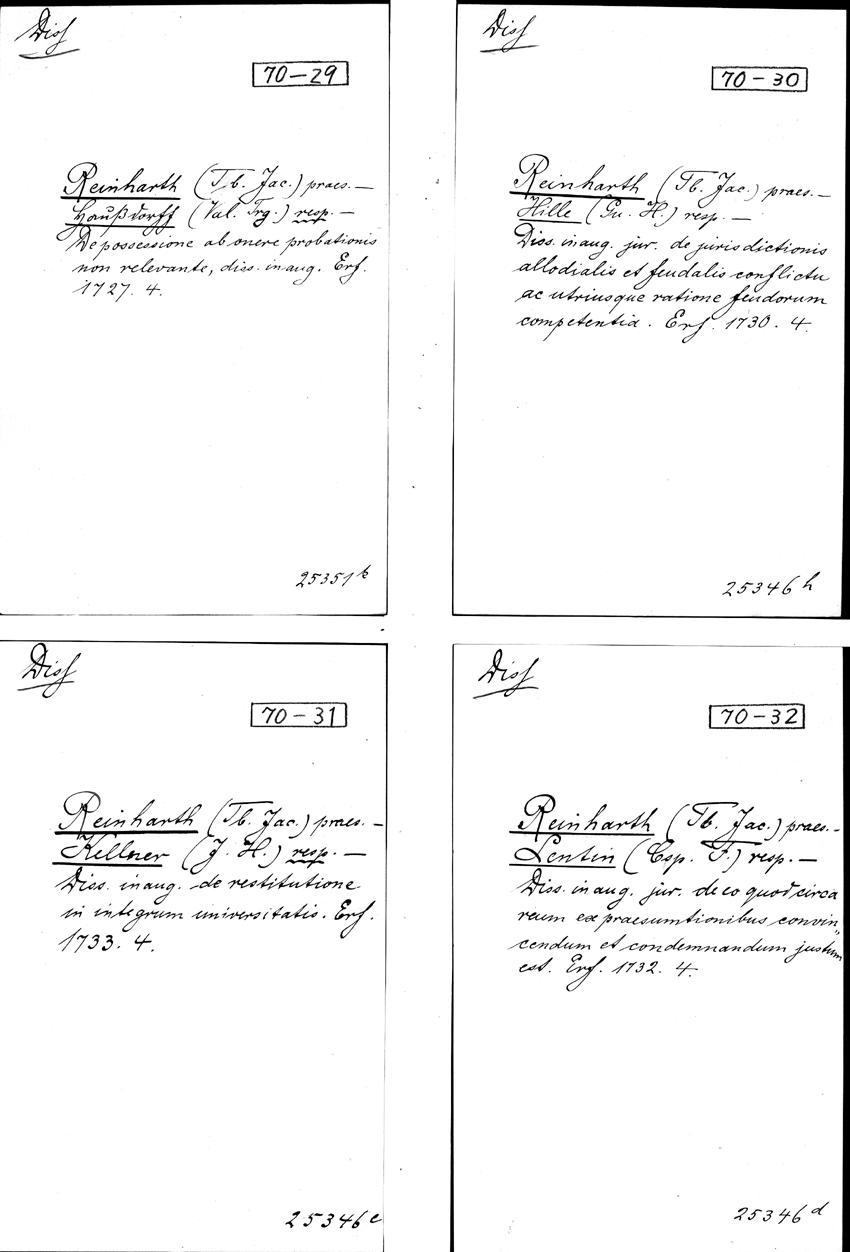 Diss
70-29
Reinharth (Tb. Jac.) praes. —
Haußdorff (Val. Trg.) resp. —
De possessione ab onere probationis
non relevante, diss. inaug. Erf.
1727. 4.
25351 k
Diss
70-30
Reinharth (Tb. Jac.) praes. —
Hille (Gu. H.) resp. —
Diss. inaug. jur. de jurisdictionis
allodialis et feudalis conflictu
ac utriusque ratione feudorum
competentia. Erf. 1730. 4.
25346 h
Diss
70-31
Reinharth (Tb. Jac.) praes. —
Kellner (J. H.) resp. —
Diss. inaug. de restitutione
in integrum universitatis. Erf.
1733. 4.
25346 e
Diss
70-32
Reinharth (Tb. Jac.) praes. —
Lentin (Csp. F.) resp. —
Diss. inaug. jur. de eo quod circa
reum ex praesumtionibus convin„
cendum et condemnandum justum
est. Erf. 1732. 4.
25346 d